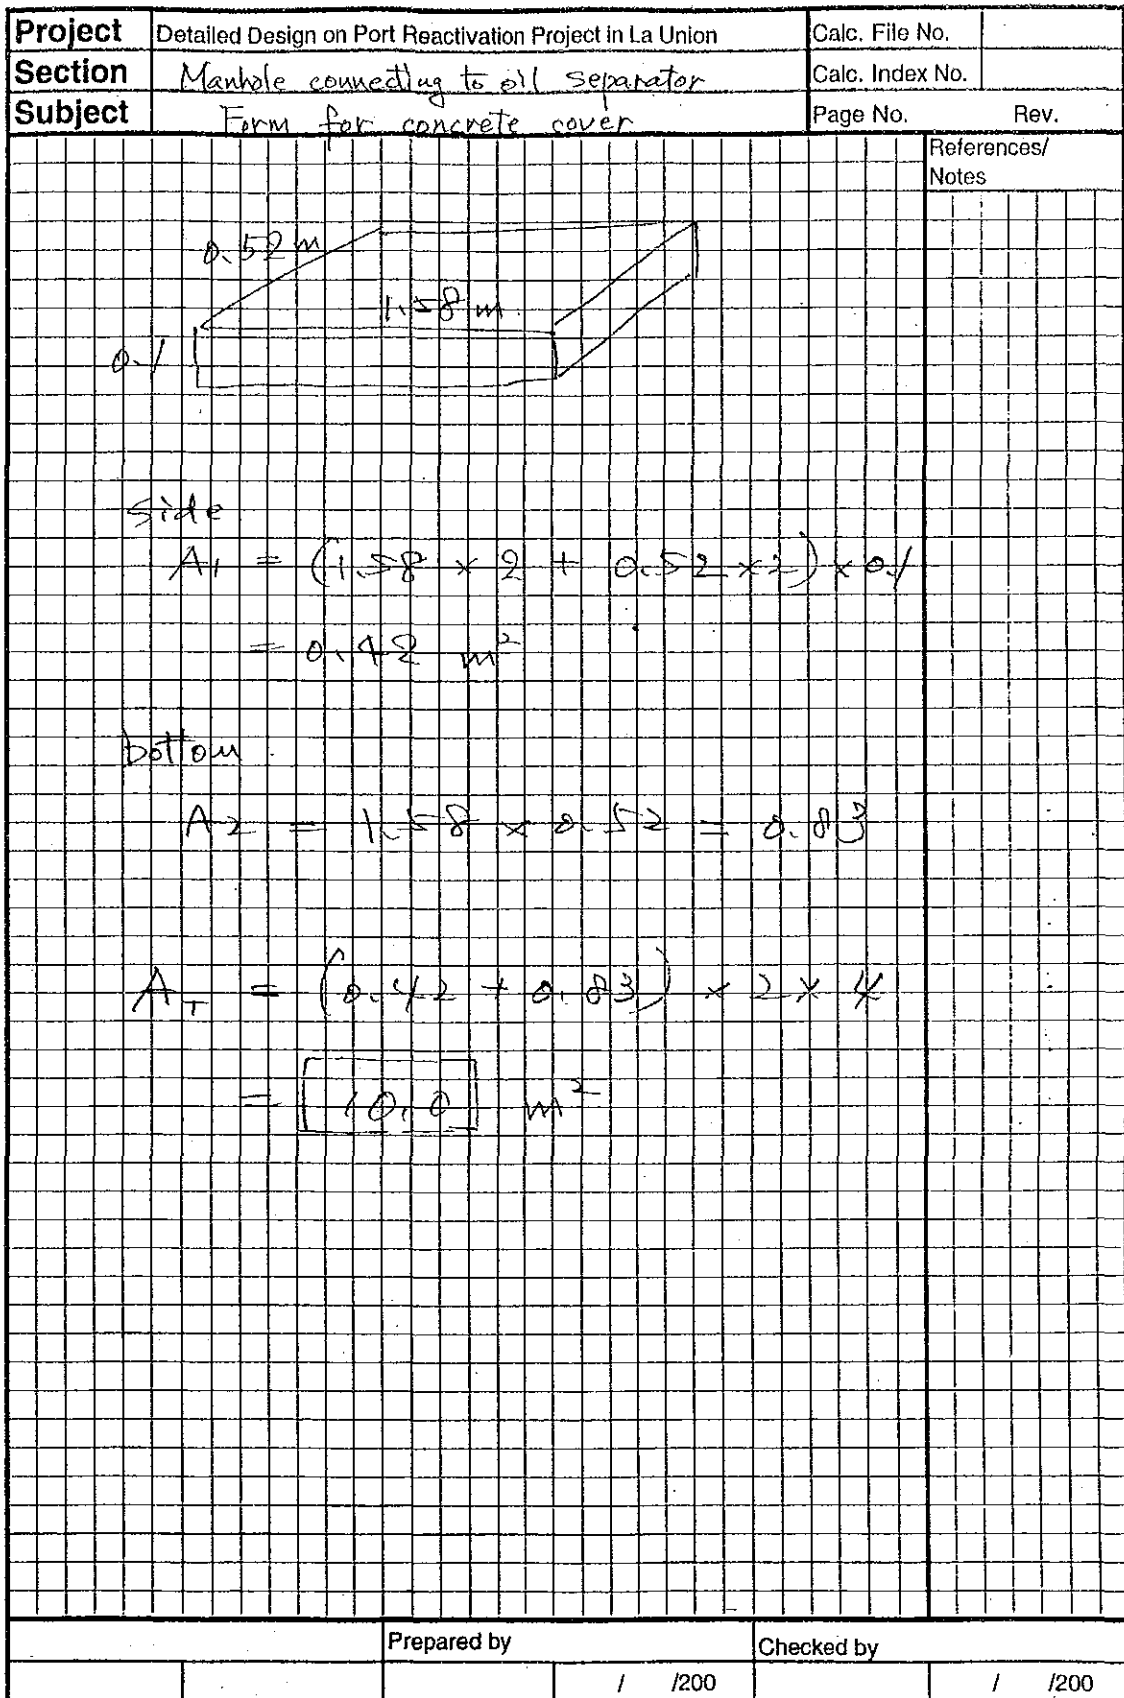 Project Detailed Design on Port Reactivation Project in La Union Calc. File No.
Section Manhole connecting to oil separator Calc. Index No.
Subject Form for concrete cover Page No. Rev.
References/
Notes
0.52 m
1.58 m
0.1
side
A1 = (1.58 × 2 + 0.52 × 2) × 0.1
= 0.42 m²
bottom
A2 = 1.58 × 0.52 = 0.83
AT = (0.42 + 0.83) × 2 × 4
= 10.0 m²
Prepared by Checked by
/ /200 / /200